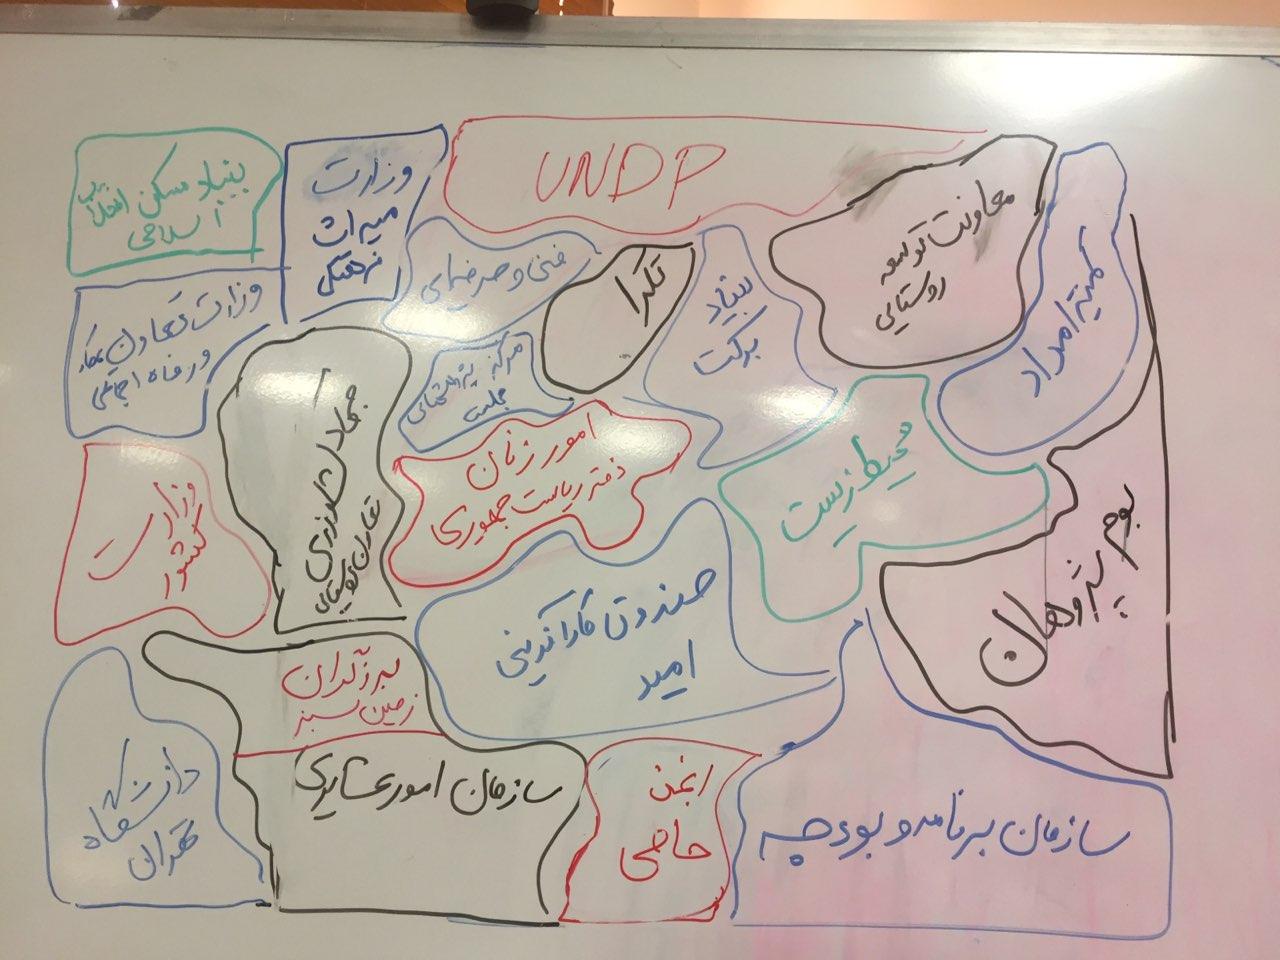 UNDP
معاونت توسعه
روستایی
کمیته امداد
وزارت
میراث
فرهنگی
بنیاد مسکن انقلاب
اسلامی
فنی و حرفه‌ای
تکرا
بنیاد
برکت
وزارت تعاون کار
و رفاه اجتماعی
مرکز پژوهشهای
مجلس
جهاد کشاورزی
تعاون روستایی
امور زنان
دفتر ریاست جمهوری
محیط زیست
بوم پژوهان
وزارت
کشور
صندوق کارآفرینی
امید
برزگران
زمین سبز
دانشگاه
تهران
سازمان امور عشایری
انجمن
حامی
سازمان برنامه و بودجه